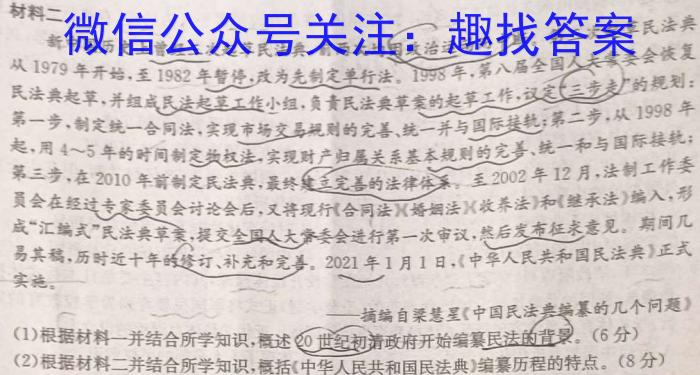 材料二
微信公众号关注：趣找答案
从1979年开始，至1982年暂停，改为先制定单行法。1998年，第八届全国人大常委会恢复
民法典起草，并组成民法起草工作小组，负责民法典草案的起草工作，议定“三步走”的规划：
第一步，制定统一合同法，实现市场交易规则的完善、统一并与国际接轨；第二步，从1998年
起，用4～5年的时间制定物权法，实现财产归属关系基本规则的完善、统一和与国际接轨；
第三步，在2010年前制定民法典，最终建立完善的法律体系。至2002年12月，法制工作委
员会在经过专家委员会讨论会后，又将现行《合同法》《婚姻法》《收养法》和《继承法》编入，形
成“汇编式”民法典草案，提交全国人大常委会进行第一次审议，然后发布征求意见。期间几
易其稿，历时近十年的修订、补充和完善。2021年1月1日，《中华人民共和国民法典》正式
实施。
——摘编自梁慧星《中国民法典编纂的几个问题》
(1)根据材料一并结合所学知识，概述20世纪初清政府开始编纂民法的背景。(6分)
(2)根据材料二并结合所学知识，概括《中华人民共和国民法典》编纂历程的特点。(8分)